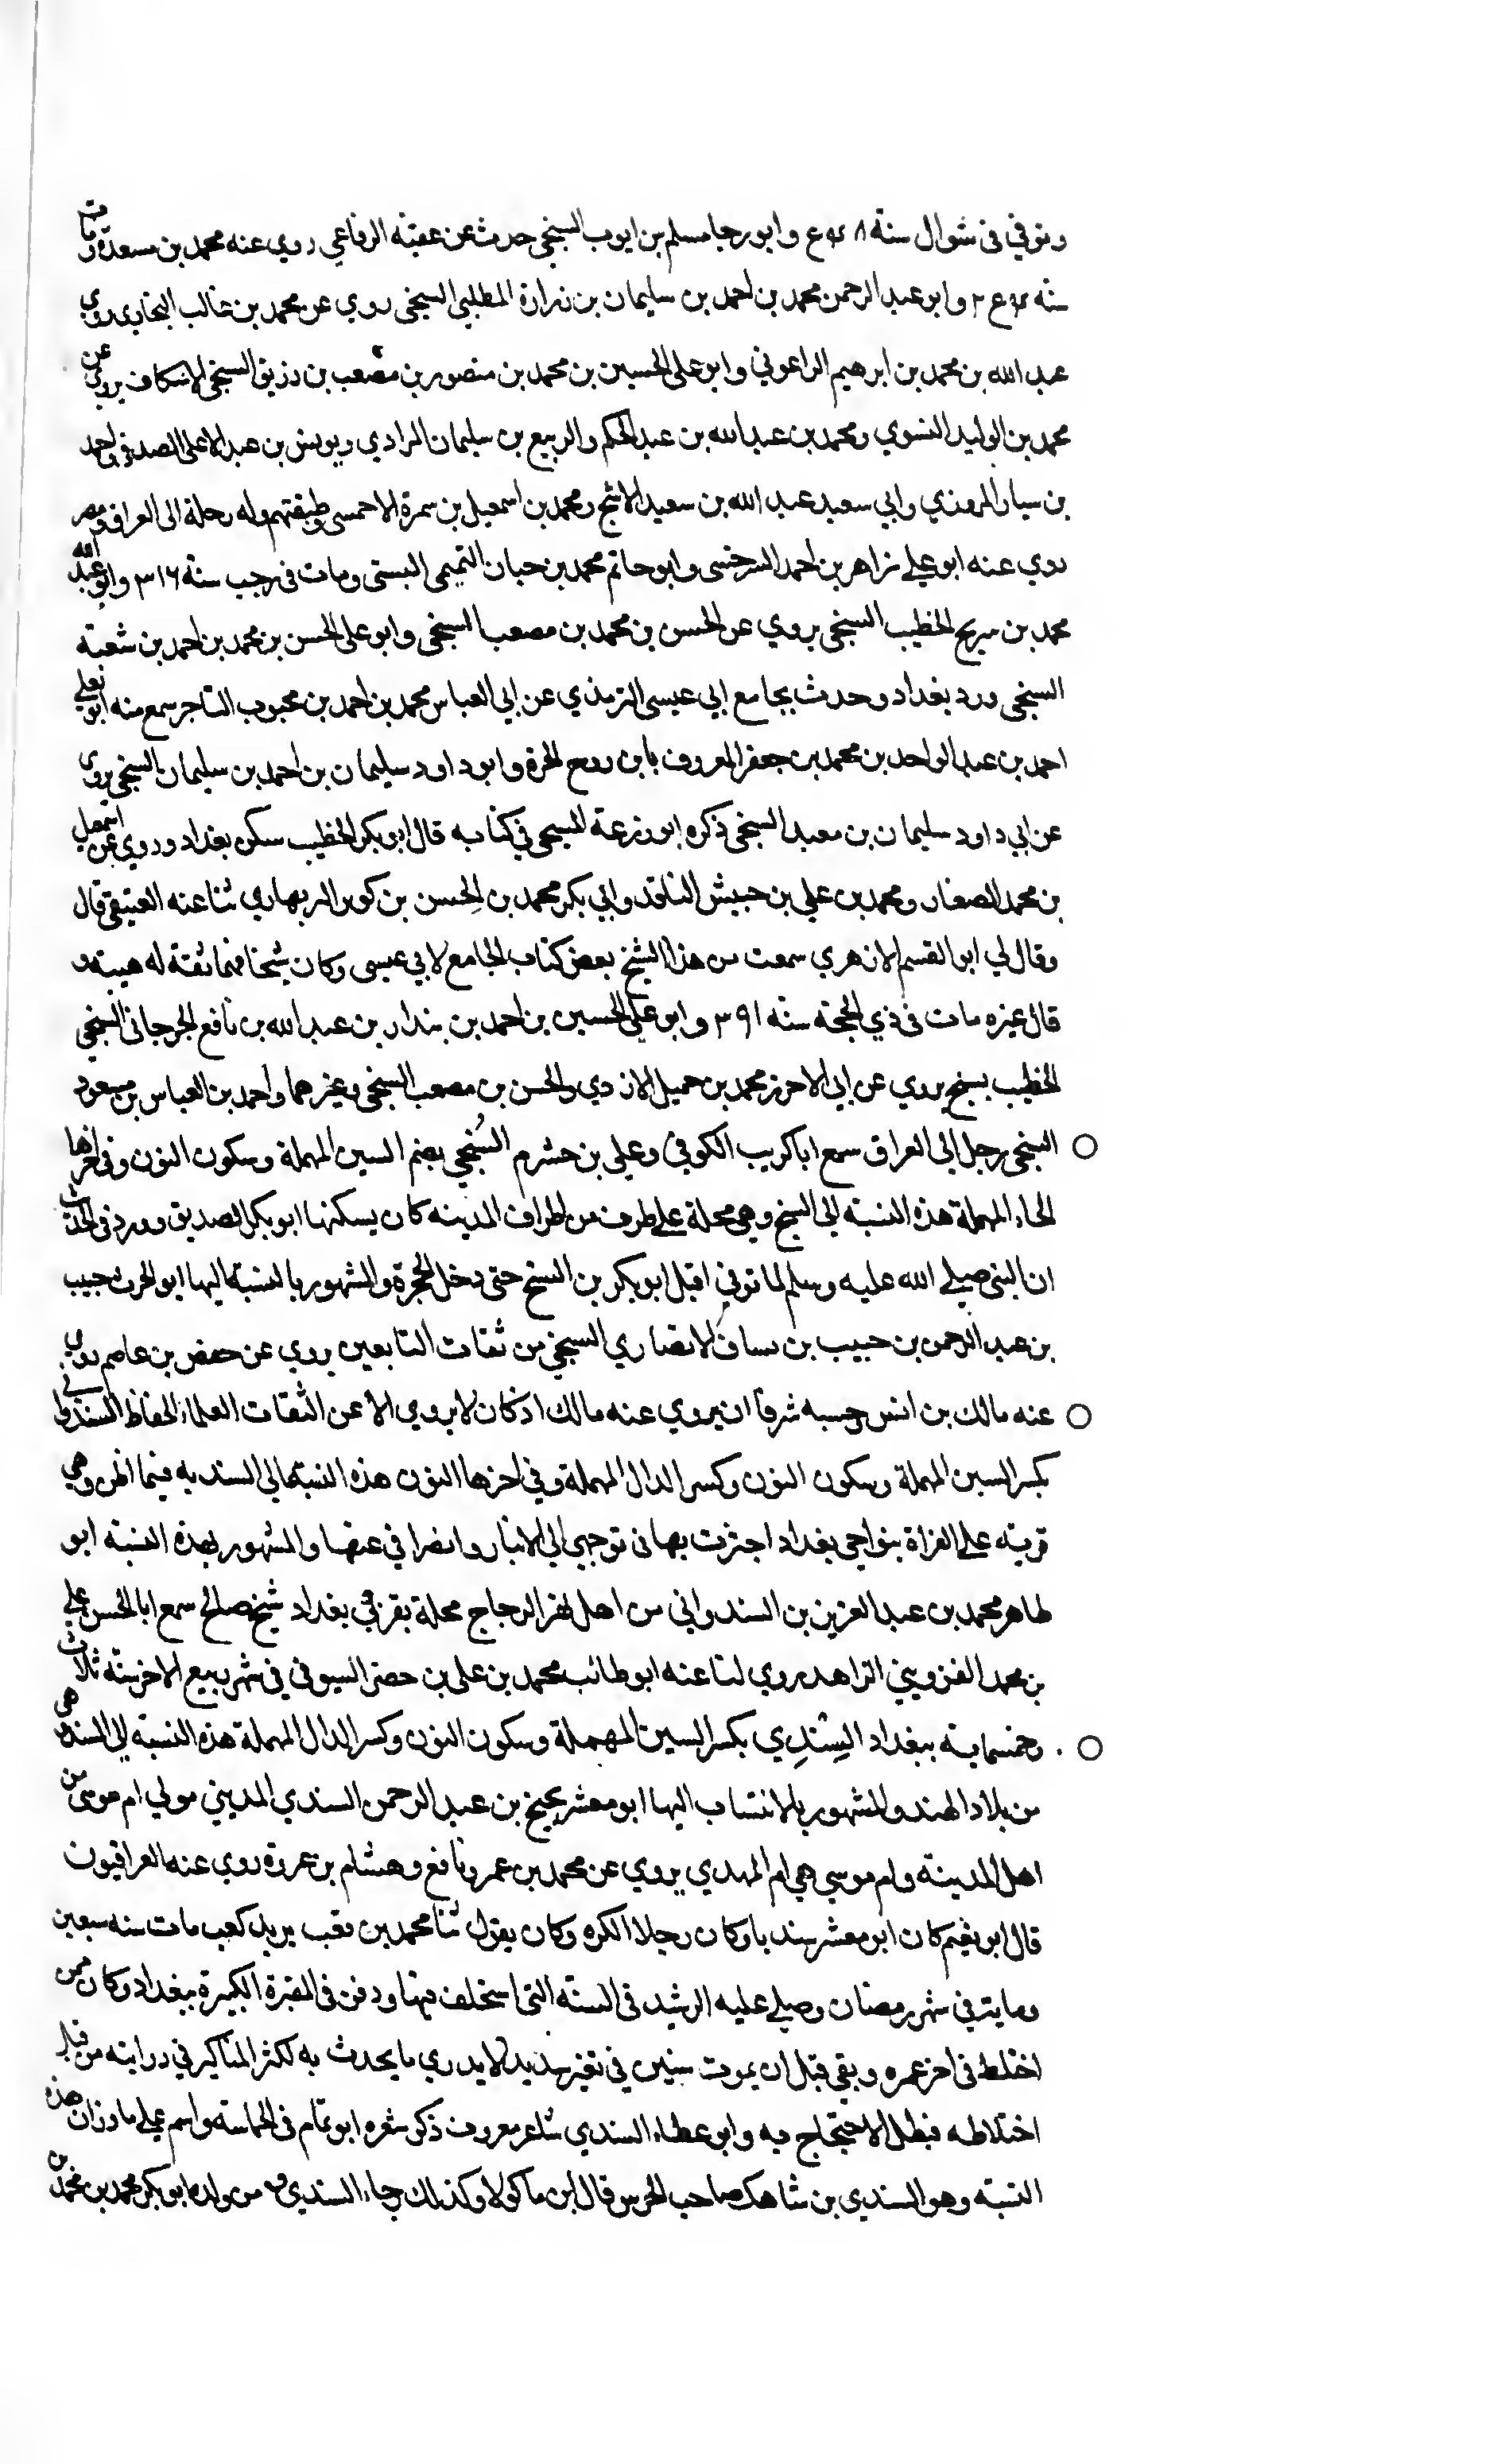 وتوفي في شوال سنة ٤٣٨ وابو رجا مسلم بن ايوب السنجي حدث عن عقبة الرفاعي روي عنه محمد بن مسعدة ومات
سنة وابو عبد الرحمن محمد بن احمد بن سليمان بن زرارة المطلبي السنجي روي عن محمد بن غالب البخاري روي
عبد الله بن محمد بن ابرهيم الزاغوني وابو علي الحسين بن محمد بن منصور بن مصعب بن رزيق السنجي الاسكاف يروي عن
محمد بن الوليد النسوي ومحمد بن عبد الله بن عبد الحكم والربيع بن سليمان المرادي ويونس بن عبد الاعلي الصدفي واحمد
بن سيار المروزي وابي سعيد عبد الله بن سعيد الاشج ومحمد بن اسمعيل بن سمرة الاحمسي وطبقتهم وله رحلة الى العراق ومصر
روي عنه ابو علي زاهر بن احمد السرخسي وابو حاتم محمد بن حبان التميمي البستي ومات في رجب سنة ٣١٦ وابو عبد الله
محمد بن سريج الخطيب السنجي يروي عن الحسن بن محمد بن مصعب السنجي وابو علي الحسن بن محمد بن احمد بن شعبة
السنجي ورد بغداد وحدث بجامع ابي عيسى الترمذي عن ابي العباس محمد بن احمد بن محبوب التاجر سمع منه ابو يعلي
احمد بن عبد الواحد بن محمد بن جعفر المعروف بابن زوج الحرة وابو داود سليمان بن احمد بن سليمان السنجي يروي
عن ابي داود سليمان بن معبد السنجي ذكره ابو زرعة السبحي في كتابه قال ابو بكر الخطيب سكن بغداد وروي عن اسمعيل
بن محمد الصفار ومحمد بن علي بن حبيش الناقد وابي بكر محمد بن الحسن بن كوثر البربهاري ثنا عنه العتيقي قال
وقال لي ابو القسم الازهري سمعت من هذا الشيخ بعض كتاب الجامع لابي عيسى وكان شيخا فهما ثقة له هيبة و
قال غيره مات في ذي الحجة سنة ٣٩١ وابو علي الحسين بن احمد بن بندار بن عبد الله بن نافع الجرجاني السنجي
الخطيب بسنج يروي عن ابي الاحرز محمد بن جميل الازدي والحسن بن مصعب السنجي وغيرهما واحمد بن العباس بن مسعود
السنجي رحل الى العراق سمع ابا كريب الكوفي وعلي بن خشرم السُنحي بضم السين المهملة وسكون النون وفي اخرها
الحاء المهملة هذه النسبة الى السنح وهي محلة على طرف من اطراف المدينة كان يسكنها ابو بكر الصديق وورد في الحديث
ان النبي صلي الله عليه وسلم لما توفي اقبل ابو بكر من السنح حتى دخل الحجرة والمشهور بالنسبة اليها ابو الحرث حبيب
بن عبد الرحمن بن حبيب بن يساف الانصاري السنحي من ثقات التابعين يروي عن حفص بن عاصم روي
عنه مالك بن انس وحسبه شرفا ان يروي عنه مالك اذ كان لا يروي الا عن الثقات العلماء الحفاظ السندواني
بكسر السين المهملة وسكون النون وكسر الدال المهملة وفي اخرها النون هذه النسبة الى السنديه فيما اظن وهي
قرية علي الفراة بنواحي بغداد اجتزت بها في توجهي الي الانبار وانصرافي عنها والمشهور بهذه النسبة ابو
طاهر محمد بن عبد العزيز بن السندواني من اهل نهر الدجاج محلة بغربي بغداد شيخ صالح سمع ابا الحسن علي
بن محمد القزويني الزاهد روي لنا عنه ابو طالب محمد بن علي بن حضر السيوفي في شهر ربيع الاخر سنة ثلاث
وخمسماية ببغداد السِنْدِي بكسر السين المهملة وسكون النون وكسر الدال المهملة هذه النسبة الي السند هي
من بلاد الهند والمشهور بالانتساب اليها ابو معشر نجيح بن عبد الرحمن السندي المديني مولي ام موسى من
اهل المدينة وام موسي هي ام المهدي يروي عن محمد بن عمر ونافع وهشام بن عروة روي عنه العراقيون
قال ابو نعيم كان ابو معشر سنديا وكان رجلا الكن وكان يقول ثنا محمد بن قعب يريد كعب مات سنه سبعين
وماية في شهر رمضان وصلي عليه الرشيد في السنة التي استخلف فيها ودفن في المقبرة الكبيرة ببغداد وكان ممن
اختلط في اخر عمره وبقي قبل ان يموت سنين في تغير شديد لا يدري ما يحدث به لكثر المناكير في روايته من قبل
اختلاطه فبطل الاحتجاج به وابو عطاء السندي شاعر معروف ذكر شعره ابو تمام في الحماسة واسم علي ما وزان هذه
النسبة وهو السندي بن شاهك صاحب الحرس قال ابن ماكولا وكذلك رجاء السندي ومن ولده ابو بكر محمد بن محمد بن